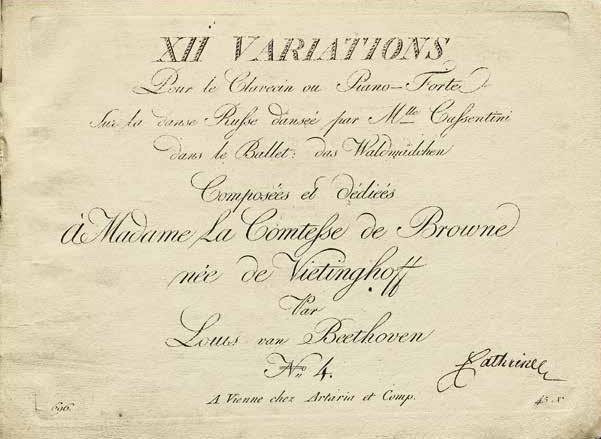 XII VARIATIONS
Pour le Clavecin ou Piano-Forte
Sur la danse Russe dansée par Mlle Cassentini
dans le Ballet: das Waldmädchen
Composées et dédiées
à Madame La Comtesse de Browne
née de Vietinghoff
Par
Louis van Beethoven
No 4.
Cathrine
696.
A Vienne chez Artaria et Comp.
45 x